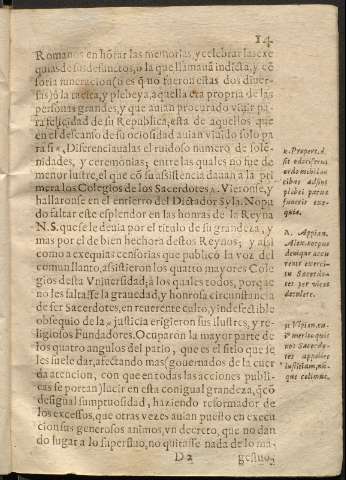 14.
Romanos en hõrar las memorias, y celebrar las exe
quias de sus defunctos, ò la que llamauã indicta, y cẽ
soria funeracion (o es q̃ no fueron estas dos diuer-
sas) ò la tacita, y plebeya, aquella era propria de las
personas grandes, y que auian procurado viuir pa-
ra felicidad de su Republica, esta de aquellos que
en el descanso de su ociosidad auian viuido solo pa
ra si x. Diferenciauala s el ruidoso numero de sole-
nidades, y ceremonias; entre las quales no fue de
menor lustre, el que cõ su assistencia dauan a la pri
mera los Colegios de los Sacerdotes λ. Vieronse, y
hallaronse en el entierro del Dictador Syla. No pu
do faltar este esplendor en las honras de la Reyna
N.S. que se le deuia por el titulo de su grandeza, y
mas por el de bien hechora destos Reynos; y assi
como a exequias censorias que publicò la voz del
comun llanto, assistieron los quatro mayores Cole
gios desta Vniuersidad, à los quales todos, porque
no les faltasse la grauedad, y honrosa circunstancia
de ser Sacerdotes, en reuerente culto, y indefectible
obsequio de la justicia erigieron sus ilustres, y re-
ligiosos Fundadores. Ocuparon la mayor parte de
los quatro angulos del patio, que es el sitio que se
les suele dar, afectando mas (gouernados de la cuer
da atencion, con que en todas las acciones publi-
cas se portan) lucir en esta con igual grandeza, q̃ cõ
desigual sumptuosidad, haziendo reformador de
los excessos, que otras vezes auian puesto en execu
cion sus generosos animos, vn decreto, que no dan
do lugar a lo superfluo, no quitasse nada de lo ma-
D 2 gestuo-
x. Propert. d.
sit
ordo mihi
cibus adsint
plebei paruæ
funeris exe-
quiæ.
λ. Appian.
Alex. corpus
demque
Sacerdo-
tes per vices
y Vlpian.
i* merito quis
nos Sacerdo-
tes appellet
Iustitiam, nã-
que colimus.